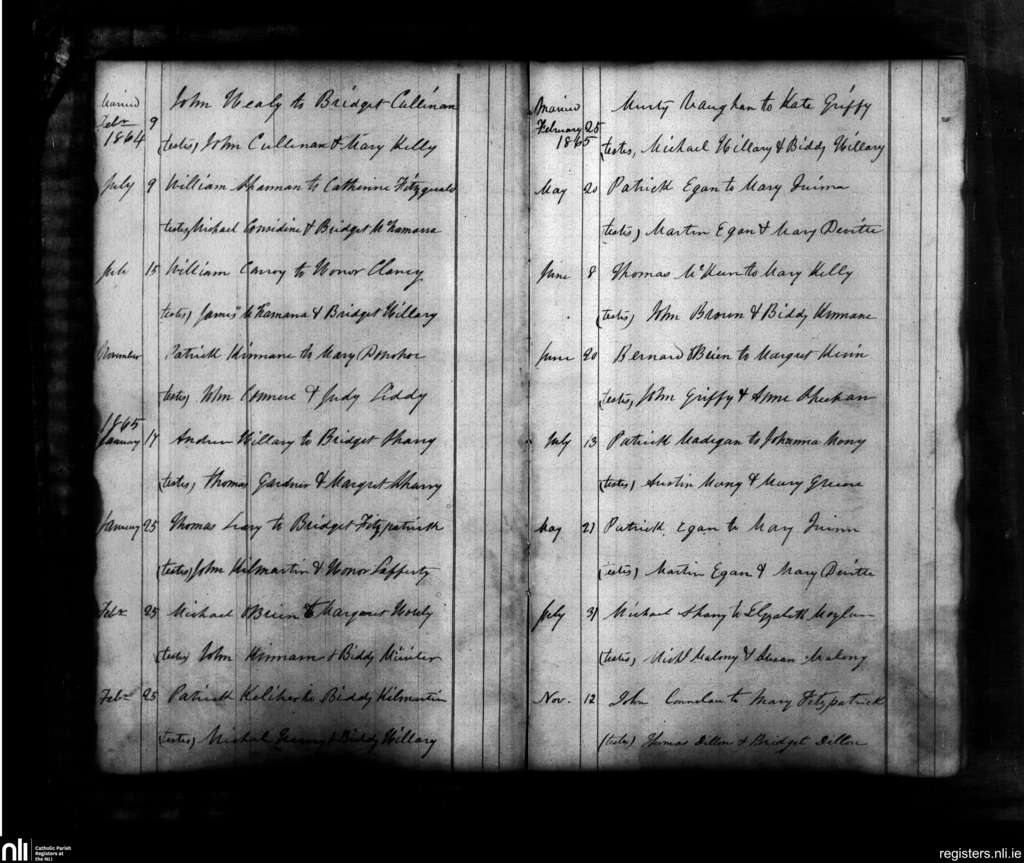 Married
Feb. 9 John Healy to Bridget Cullinan
1864 (testes) John Cullinan & Mary Kelly
July 9 William Shannan to Catherine Fitzgerald
testes, Michael Considine & Bridget McNamara
15 William to Honor Clancy
(testes) James McNamara & Bridget Hillary
November Patrick Kinnane to Mary Donohoe
(testes) John & Judy Liddy
1865
January 17 Andrew Hillary to Bridget Sharry
(testes, Thomas Gardner & Margret Sharry
January 25 Thomas Leary to Bridget Fitzpatrick
(testes) John Kilmartin & Honor Lafferty
Feb. 25 Michael OBrien to Margaret
(testes) John & Biddy
Feb. 25 Patrick to Biddy Kilmartin
(testes) Michael & Biddy Hillary
Married
February 25 Murty Vaughan to Kate Griffy
1865 (testes, Michael Hillary & Biddy Hillary
May 20 Patrick Egan to Mary
(testes) Martin Egan & Mary
June 8 Thomas to Mary Kelly
(testes) John Brown & Biddy Kinnane
June 20 Bernard OBrien to Margret
(testes, John Griffy & Anne Sheehan
July 13 Patrick Madigan to Johanna
(testes) Austin & Mary
May 21 Patrick Egan to Mary
(testes) Martin Egan & Mary
July 31 Michael Sharry to Elizabeth Moylan
(testes, Michl Malony & Susan Malony
Nov. 12 John Connelan to Mary Fitzpatrick
(testes) Thomas Dillon & Bridget Dillon
nli
Catholic Parish
Registers at
the NLI
registers.nli.ie